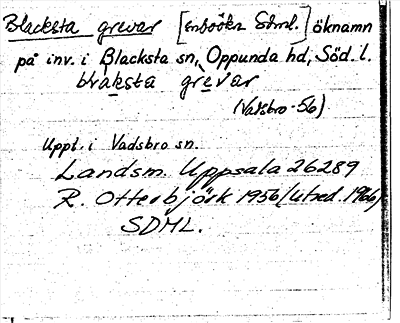 Blacksta grevar [ensöökn Sdml.] öknamn
på inv. i Blacksta sn, Oppunda hd, Söd. l.
blaksta grevar
(Vadsbro -56)
Uppt. i Vadsbro sn.
Landsm. Uppsala 26289
R. Otterbjörk 1956 (utred. 1966)
SDML.